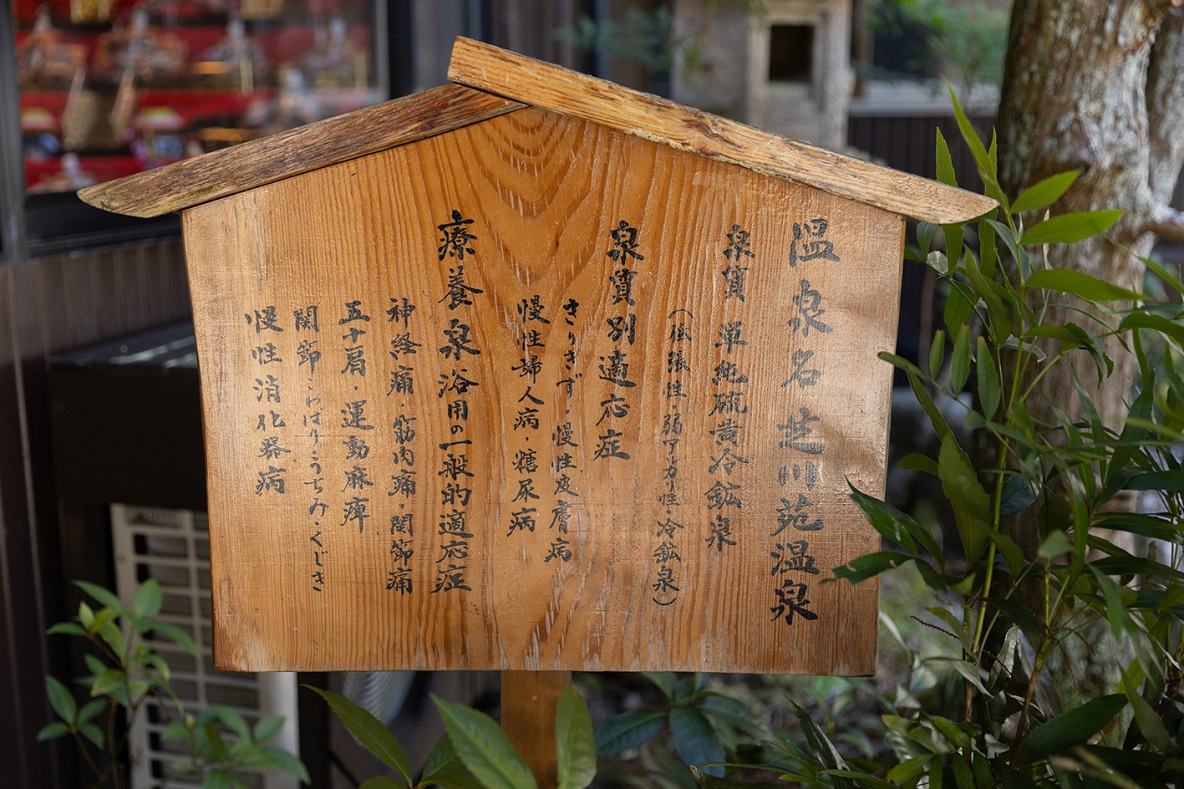 温泉名 芝川苑温泉
泉質 単純硫黄冷鉱泉
(低張性・弱アルカリ性・冷鉱泉)
泉質別適応症
きりきず・慢性皮膚病
慢性婦人病・糖尿病
療養泉浴用の一般的適応症
神経痛・筋肉痛・関節痛
五十肩・運動麻痺
関節こわばり・うちみ・くじき
慢性消化器病